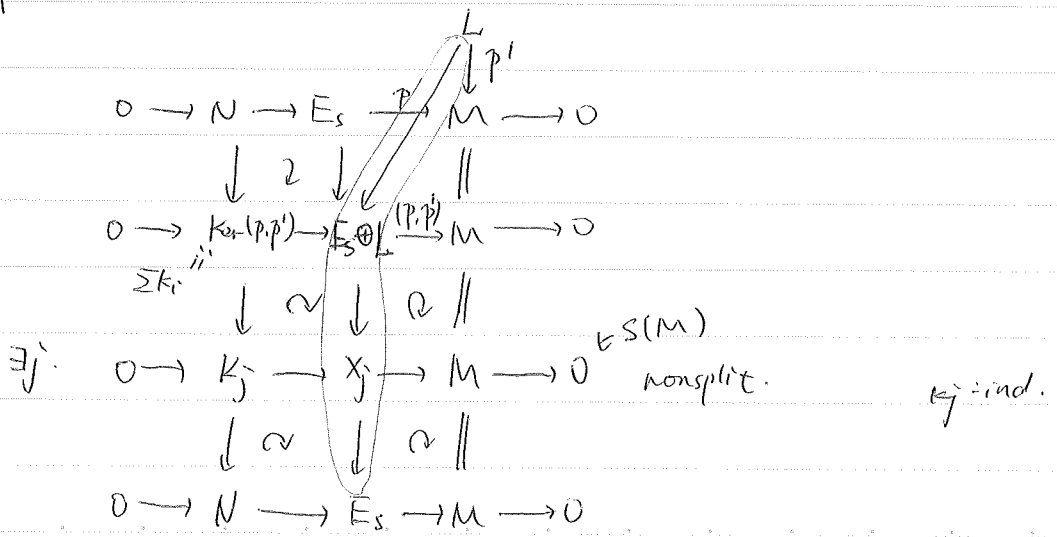 L
↓ p'
0 → N → E_s →^p M → 0
↓ 2 ↓ ‖
0 → Ker(p,p') → E_s ⊕ L →^(p,p') M → 0
ΣK_i
↓ ↓ ‖
∃j. 0 → K_j → X_j → M → 0 ∈ S(M)
nonsplit. K_j : ind.
↓ ↓ ‖
0 → N → E_s → M → 0